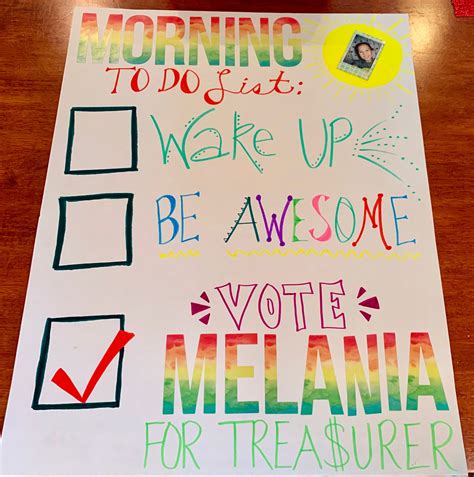 MORNING
TO DO List:
Wake UP
BE AWESOME
VOTE
MELANIA
FOR TREA$URER